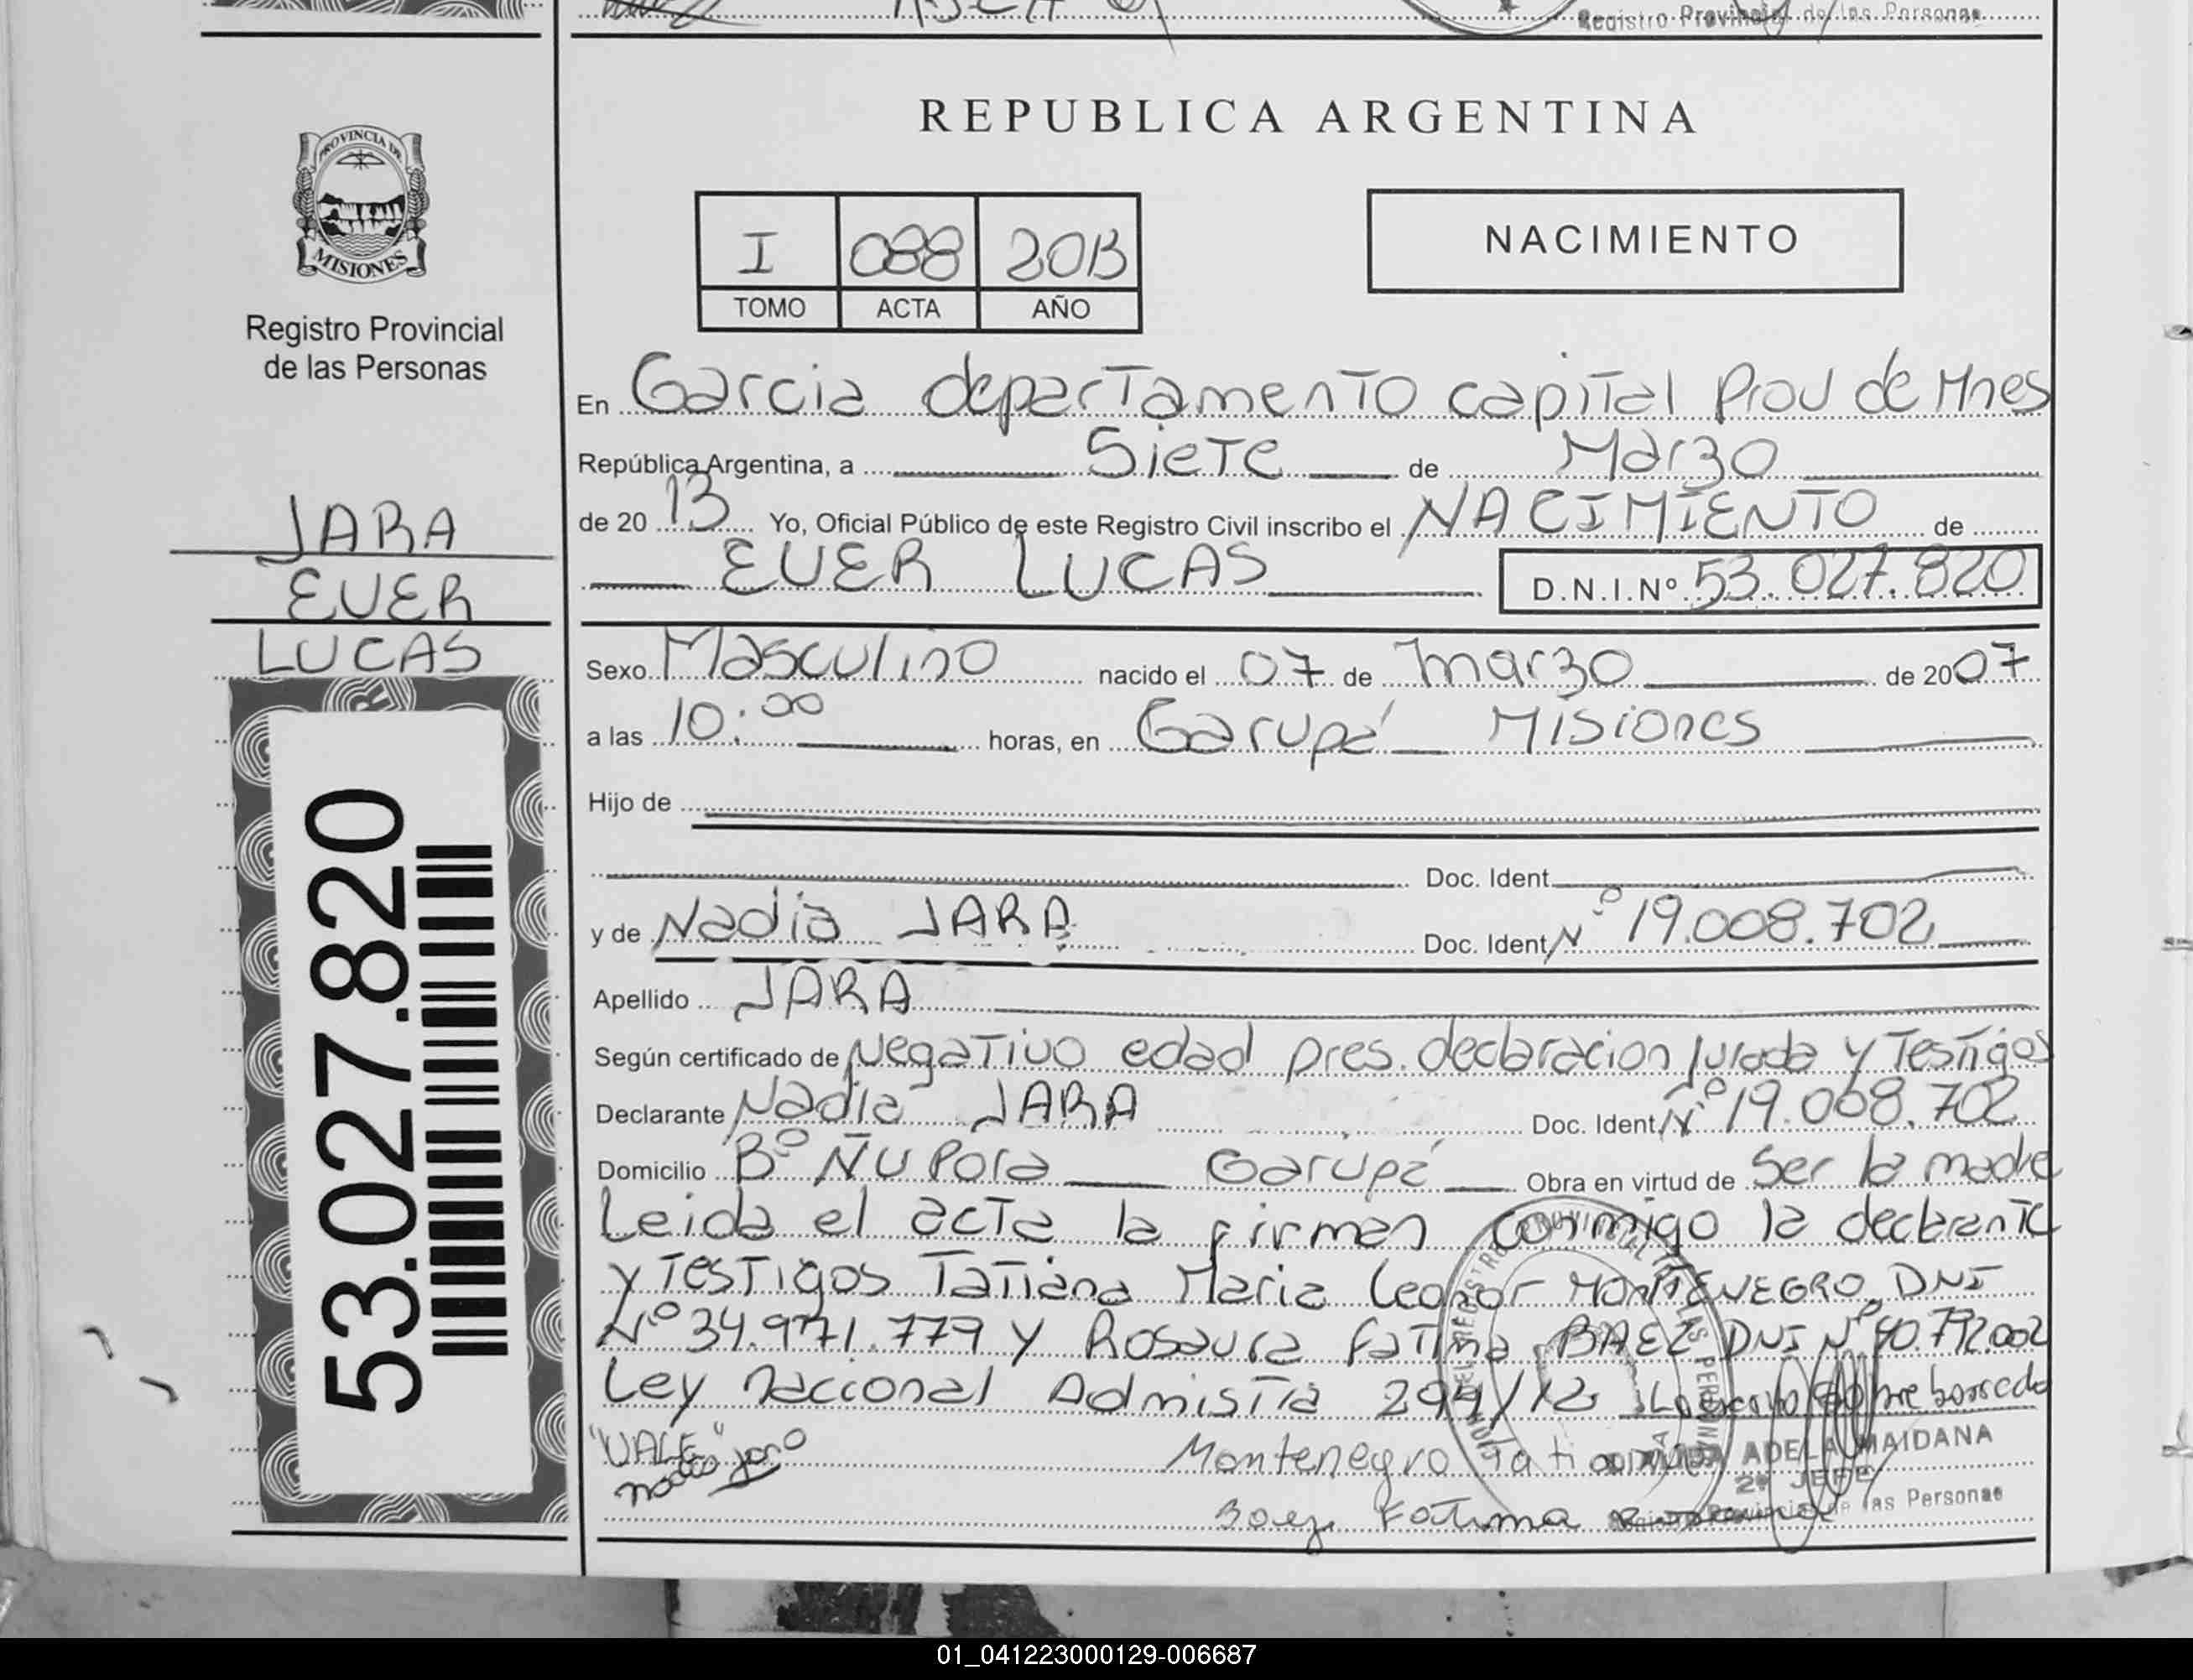 Registro Provincial de las Personas
PROVINCIA DE
MISIONES
Registro Provincial
de las Personas
JARA
EVER
LUCAS
53.027.820
REPUBLICA ARGENTINA
I 088 2013
TOMO ACTA AÑO
NACIMIENTO
En Garcia departamento capital Prov de Mnes
República Argentina, a Siete de Marzo
de 20 13 Yo, Oficial Público de este Registro Civil inscribo el NACIMIENTO de
EVER LUCAS D.N.I.Nº 53.027.820
Sexo Masculino nacido el 07 de marzo de 2007
a las 10:00 horas, en Garupá Misiones
Hijo de
Doc. Ident.
y de Nadia JARA Doc. Ident Nº 19.008.702
Apellido JARA
Según certificado de Negativo edad pres. declaracion Jurada y Testigos
Declarante Nadia JARA Doc. Ident. Nº 19.008.702
Domicilio Bº ÑU Pora Garupá Obra en virtud de Ser la madre
Leida el acta la firman conmigo la declarante
y Testigos Tatiana Maria Leonor MONTENEGRO DNI
Nº 34.971.779 y Rosaura Fatima BAEZ DNI Nº 40.792.002
Ley nacional Admistia 294/12 Lo escrito sobre borrado
"VALE"
Montenegro Tatiana
ADELA MAIDANA
2º JEFE
Baez Fatima
Registro Provincial de las Personas
01_041223000129-006687